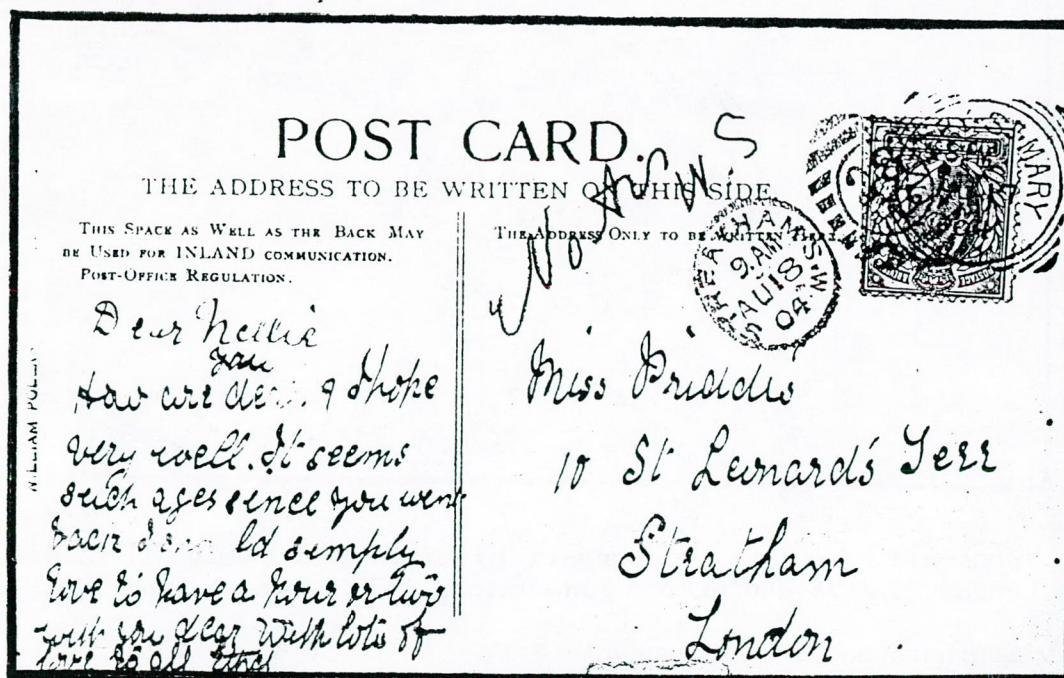 POST CARD.
THE ADDRESS TO BE WRITTEN ON THIS SIDE.
THIS SPACE AS WELL AS THE BACK MAY
BE USED FOR INLAND COMMUNICATION.
POST-OFFICE REGULATION.
Dear Nellie
you
How are dear I hope
very well. It seems
such ages since you went
back I ld simply
love to have a hour or two
with you dear With lots of
love to all Ethel
WILLIAM
THE ADDRESS ONLY TO BE WRITTEN HERE.
S W
STREATHAM S.W
9. AM
AU 18
04
MARY
Miss Priddis
10 St Leonard's Terr
Streatham
London